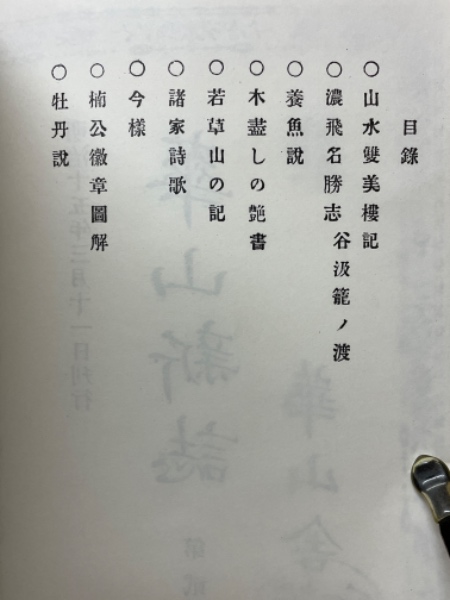 目錄
○山水雙美樓記
○濃飛名勝志 谷汲籠ノ渡
○養魚說
○木盡しの艶書
○若草山の記
○諸家詩歌
○今樣
○楠公徽章圖解
○牡丹說